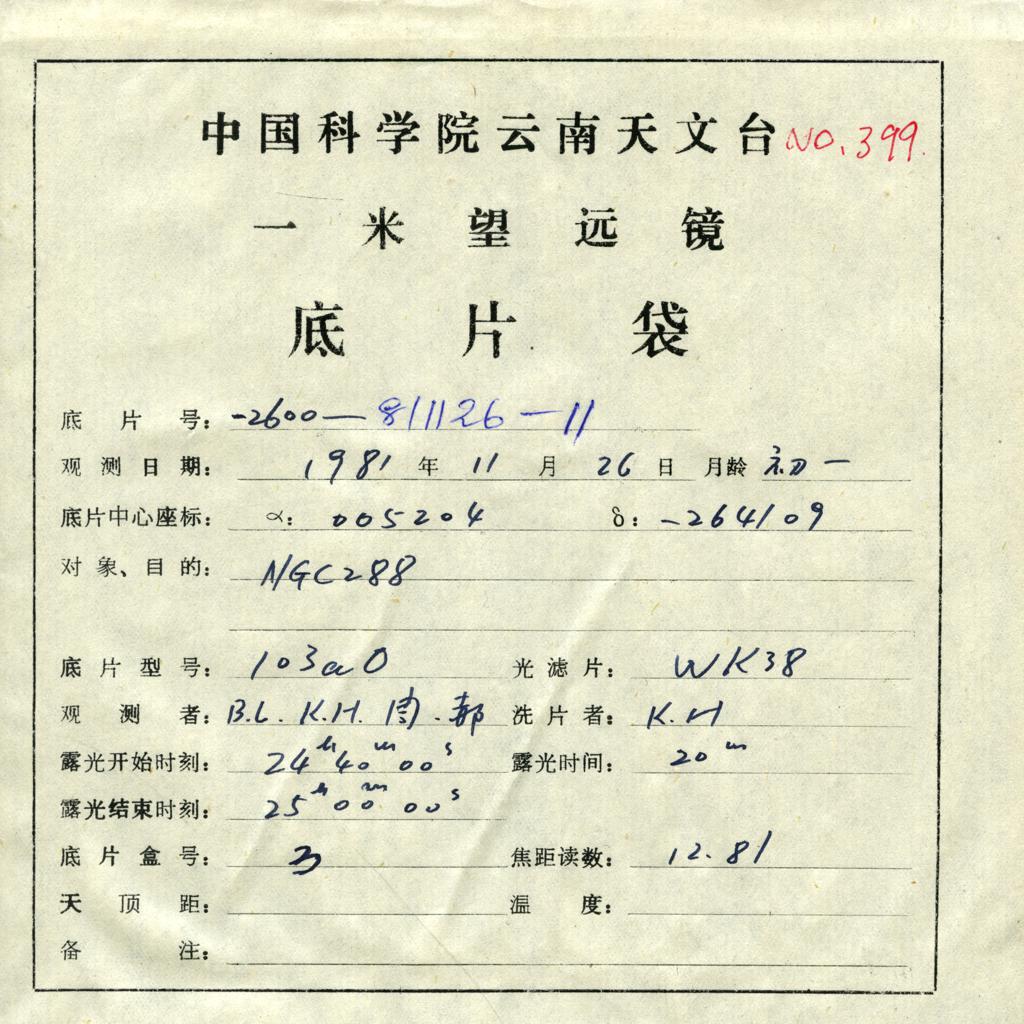 中国科学院云南天文台 NO.399.
一米望远镜
底片袋
底片号: -2600—811126—11
观测日期: 1981年11月26日 月龄 初一
底片中心座标: α: 005204 δ: -264109
对象、目的: NGC288
底片型号: 103aO 光滤片: WK38
观测者: B.L. K.H. 周.郝 洗片者: K.H
露光开始时刻: 24h40m00s 露光时间: 20m
露光结束时刻: 25h00m00s
底片盒号: 3 焦距读数: 12.81
天顶距: 温度:
备注: